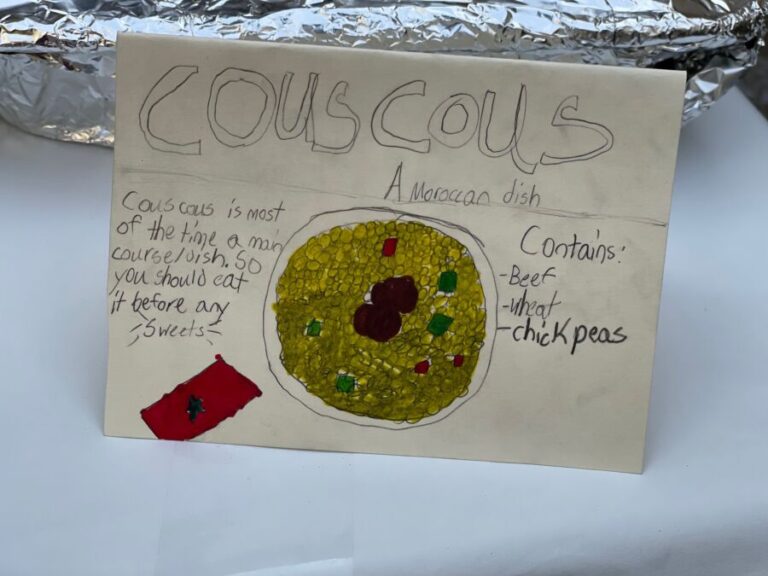 COUSCOUS
A Moroccan dish
Couscous is most
of the time a main
course/dish. So
you should eat
it before any
Sweets
Contains:
-Beef
-wheat
-chickpeas